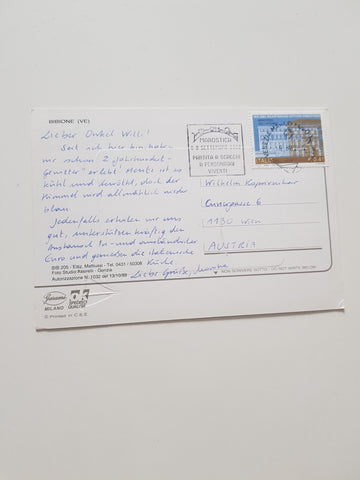 BIBIONE (VE)
Lieber Onkel Willi!
Seit ich hier bin haben
wir schon 2 "Jahrhundert-
gewitter" erlebt. Heute ist es
kühl und bewölkt, doch der
Himmel wird allmählich wieder
blau.
Jedenfalls erholen wir uns
gut, unterstützen kräftig den
Austausch in- und ausländischer
Euro und genießen die italienische
Küche.
Liebe Grüße,
MAROSTICA
SETTEMBRE
PARTITA A SCACCHI
A PERSONAGGI
VIVENTI
ITALIA
€ 0,41
Wilhelm
1130 Wien
AUSTRIA
BIB 205 - Ediz. Mattiussi - Tel. 0431 / 50308
Foto Studio Resinelli - Gorizia
Autorizzazione N. 1032 del 13/10/88
NON SCRIVERE SOTTO - DO NOT WRITE BELOW
MILANO
© Printed in C.E.E.